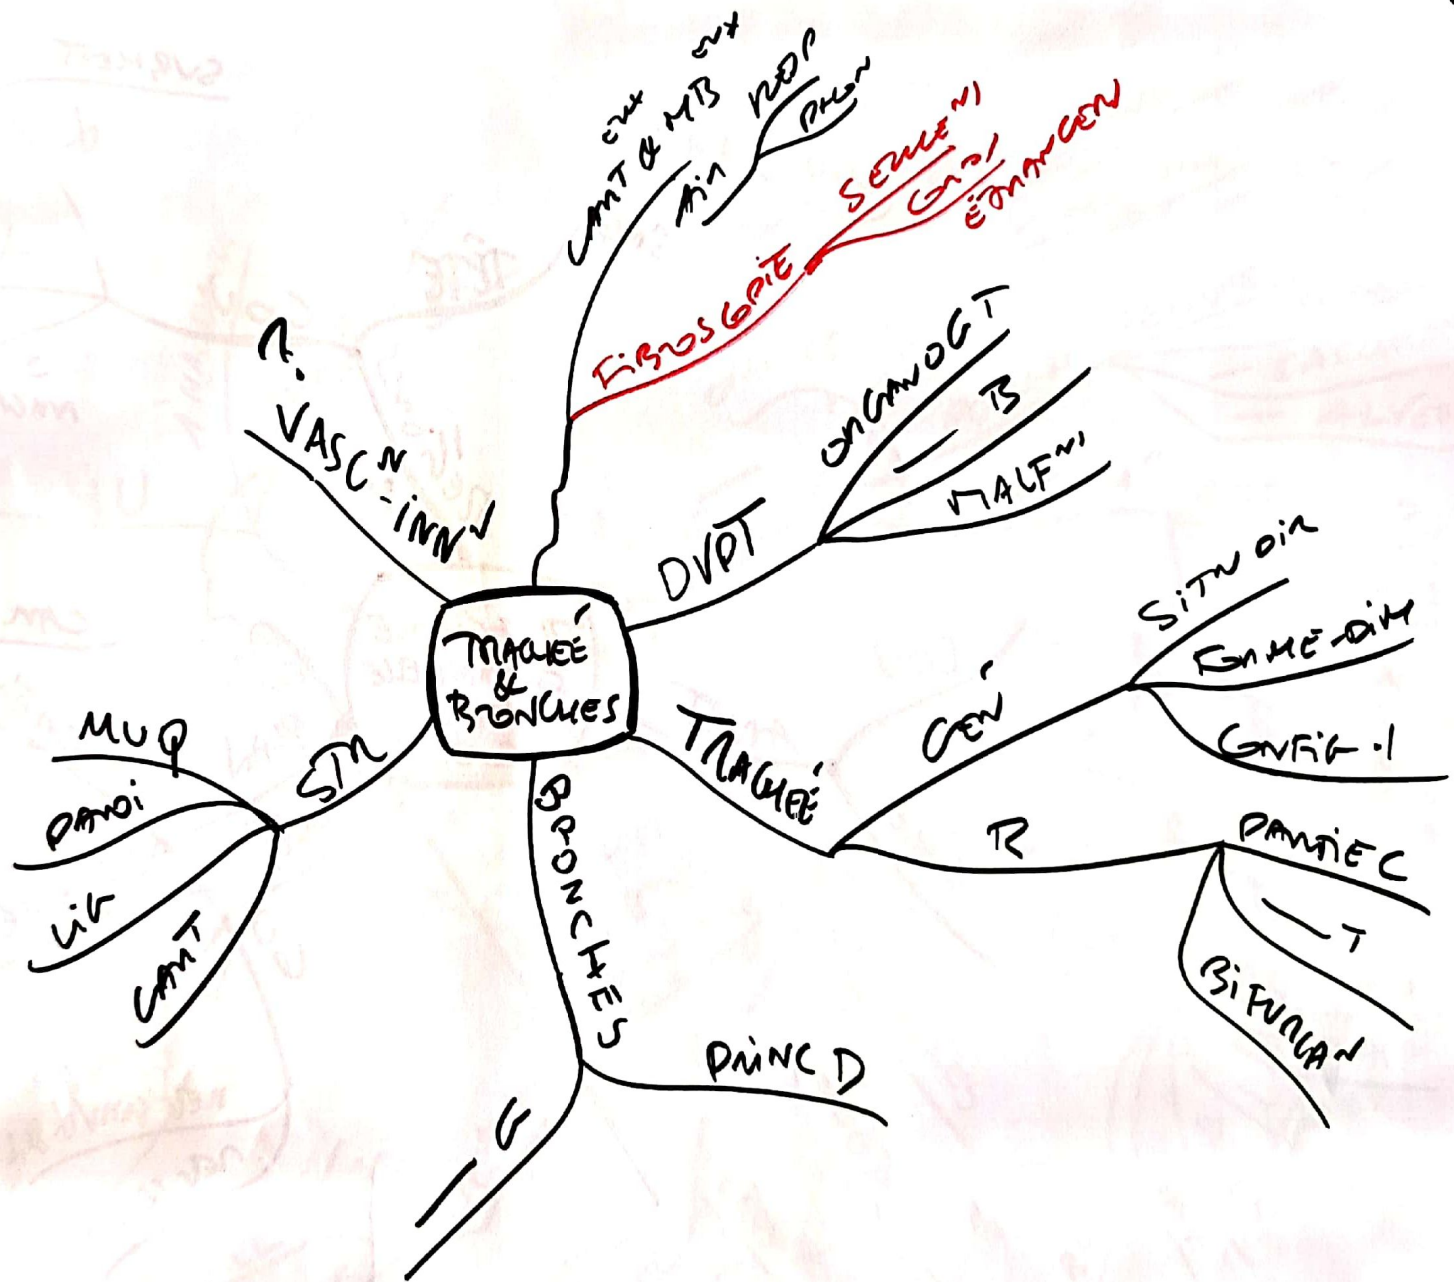 TRACHÉE
&
BRONCHES
CART & MB
AIR
RESP
PHON
FIBROSCOPIE
SECRÉ^NS
CORPS
ÉTRANGERS
DVPT
ORGANOGT
— B
MALF^NS
TRACHÉE
GÉN
SIT^N DIR
FORME-DIM
CONFIG-I
R
PARTIE C
— T
BIFURCA^N
BRONCHES
PRINC D
— G
STR
MUQ
PAROI
LIG
CART
?
VASC^N-INN^N